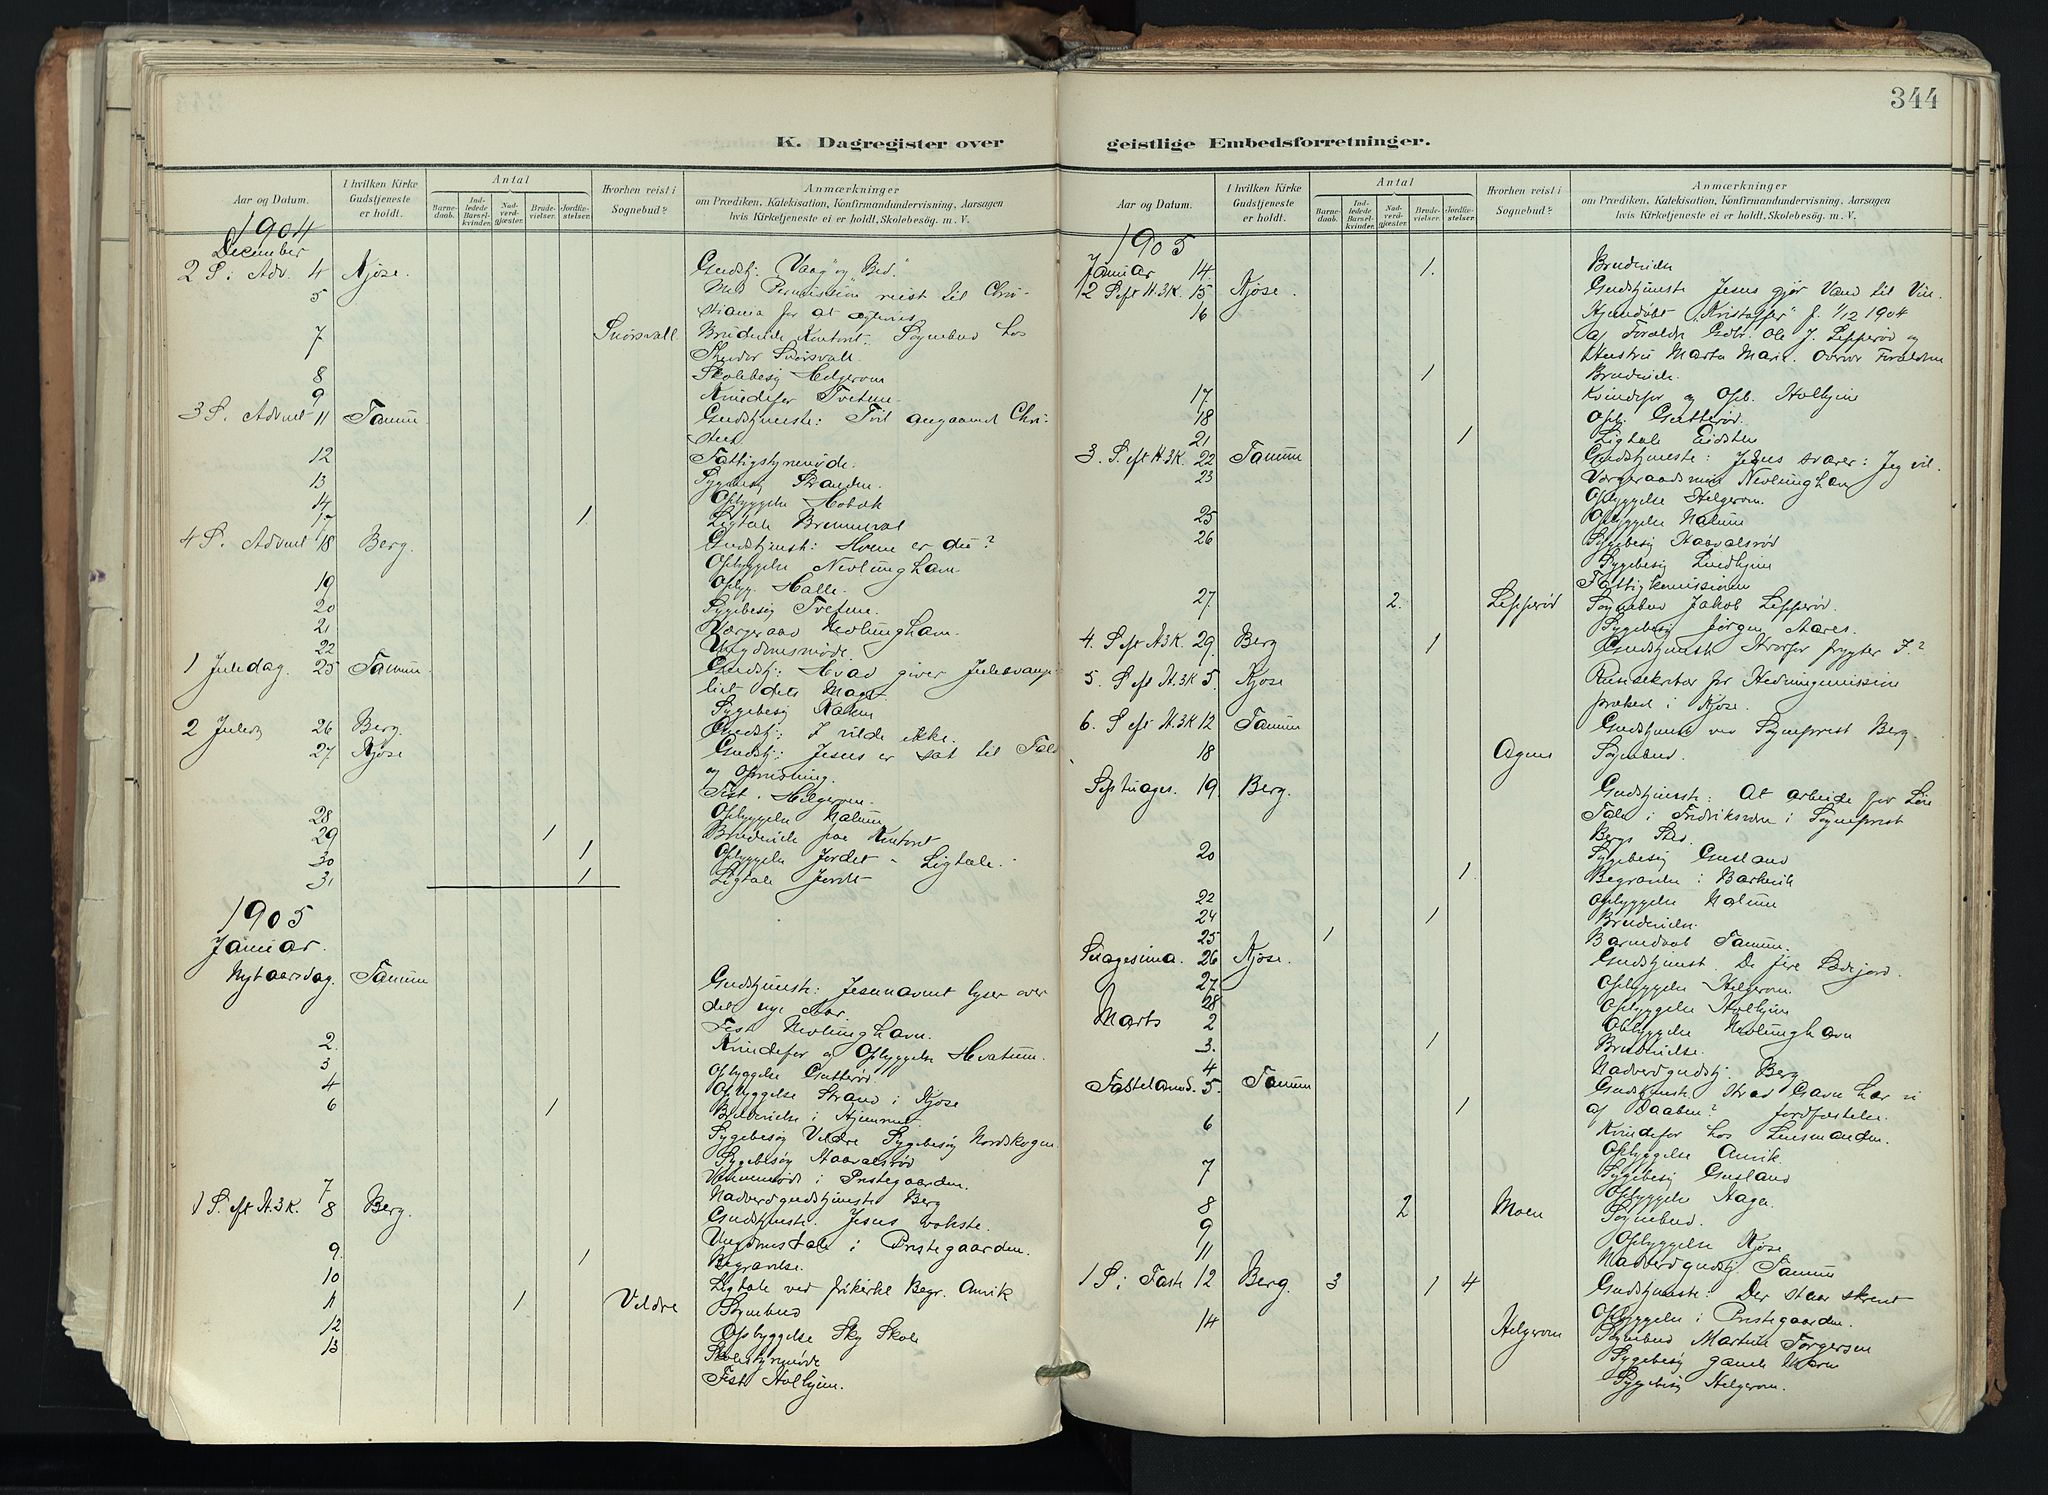 344
K. Dagregister over geistlige Embedsforretninger.
Aar og Datum. I hvilken Kirke Gudstjeneste er holdt. Antal Barnedaab. Indledede Barselkvinder. Nadverdgjæster. Brudevielser. Jordfæstelser. Hvorhen reist i Sognebud? Anmærkninger om Prædiken, Katekisation, Konfirmandundervisning, Aarsagen hvis Kirketjeneste ei er holdt, Skolebesøg. m. V.
1904
December
2 S. i Adv. 4 Kjose. Gudstj: Vaag og Bed.
5 Med Permission reist til Chri-
stiania for at
7 Snørsvall Brudevielse Kontoret. Sognebud hos
Snørsvall.
8 Skolebesøg Helgerom
9 Kvindefor Tvetene.
3 S. Advent 11 Tanum. Gudstjeneste: Tvil angaaende Chri-
sten
12 Fattigstyremøde.
13 Sygebesøg Stranden.
14 Opbyggelse Hobæk
17 1 Ligtale Brunnevall
4 S. Advent 18 Berg. Gudstjeneste: Hvem er du?
Opbyggelse Nevlunghavn
19 Opbyg. Halle.
20 Sygebesøg Tvetene.
21 Værgeraad Nevlunghavn.
22 Ungdomsmøde.
1 Juledag. 25 Tanum. Gudstj: Hvad giver Juleevange-
liet dets Magt.
Sygebesøg Nalum
2 Juledag 26 Berg. Gudstj: I vilde ikke.
27 Kjose Gudstj: Jesus er sat til Fald
og Opreisning.
Fest. Helgerom.
28 Opbyggelse Nalum
29 1 Brudevielse paa Kontoret
30 1 Opbyggelse Jordet - Ligtale.
31 1 Ligtale Jordet
1905
Januar.
Nytaarsdag. Tanum Gudstjeneste: Jesunavnet lyser over
det nye Aar.
Fest Nevlunghavn.
2. Kvindefor og Opbyggelse Hvatum.
3 Opbyggelse Gutterød
4 Opbyggelse Strand i Kjose
6 1 Brudevielse i Hjemmet
Sygebesøg Vildre Sygebesøg Nordskogen
Sygebesøg Haavalsrød
i Prestegaarden.
7. Nadverdgudstjeneste Berg
1 S. eft H.3K. 8 Berg. Gudstjeneste. Jesus vokste.
Ungdomstale i Prestegaarden.
9. 1 Begravelse.
10 Ligtale ved frikirke Begr. Anvik
11 1 Vildre Sognebud
12 Opbyggelse Sky Skole
13 Skolestyremøde
Fest Holhjem.
Aar og Datum. I hvilken Kirke Gudstjeneste er holdt. Antal Barnedaab. Indledede Barselkvinder. Nadverdgjæster. Brudevielser. Jordfæstelser. Hvorhen reist i Sognebud? Anmærkninger om Prædiken, Katekisation, Konfirmandundervisning, Aarsagen hvis Kirketjeneste ei er holdt, Skolebesøg. m. V.
1905
Januar 14. 1. Brudevielse
2 S eft H.3K. 15 Kjose. Gudstjeneste Jesus gjør Vand til Vin.
16 Hjemdøbt "Kristoffer" f. 1/12 1904
af Forældre Gdbr. Ole J. Lepperød og
Hustru Marta Marie. Forældrene
1 Brudevielse.
17. Kvindefor og Opb. Holhjem
18 Opb. Gutterød.
21 1 Ligtale Eidsten
3. S. eft H.3K. 22 Tanum Gudstjeneste: Jesus svarer: Jeg vil.
23 Værgeraadsmøde Nevlunghavn
Opbyggelse Helgerom.
25 Opbyggelse Nalum
26 Sygebesøg Haavalsrød
Sygebesøg Lindhjem
Fattigkomissionen
27. 2. Lepperød Sognebud Jakob Lepperød.
Sygebesøg Jørgen Aares.
4. S eft H3K. 29. Berg 1 Gudstjeneste Hvorfor frygter I?
5. S eft H.3K 5. Kjose Reisesekretær for Hedningemissionen
præked i Kjose.
6. S eft H.3K 12 Tanum Gudstjeneste ved Sogneprest Berg.
18 Sognebud.
Septuages. 19. Berg. Gudstjeneste: At arbeide for Løn
Tale i Fredriksværn i Sogneprest
Bergs Sted.
20 Sygebesøg Gusland
1 Begravelse i Barkevik
22 Opbyggelse Nalum
24 1 Brudevielse.
25 1 Barnedaab Tanum.
Sexagesima. 26 Kjose. Gudstjenest. De fire Sædejord.
27. Opbyggelse Helgerom.
28 Opbyggelse Holhjem
Marts 2 Opbyggelse Nevlunghavn
3. 1 Brudevielse.
4 Nadverdgudstj. Berg
Fastelavnd. 5. Tanum Gudstjeneste. Hvad Gavn har vi
1 af Daaben? Jordfæstelse.
6 Kvindefor hos Lensmanden.
Opbyggelse Anvik
7 Sygebesøg Gusland
Opbyggelse Haga
8 2 Moen Sognebud.
9 Opbyggelse Kjose
11 Nadverdgudstj. Tanum
1 S. i Faste 12 Berg. 3 1 4 Gudstjeneste: Der staar skrevet
Opbyggelse i Prestegaarden.
14 Helgerom Sognebud Martin Torgersen
Sygebesøg gamle Maren
Sygebesøg Helgerom.